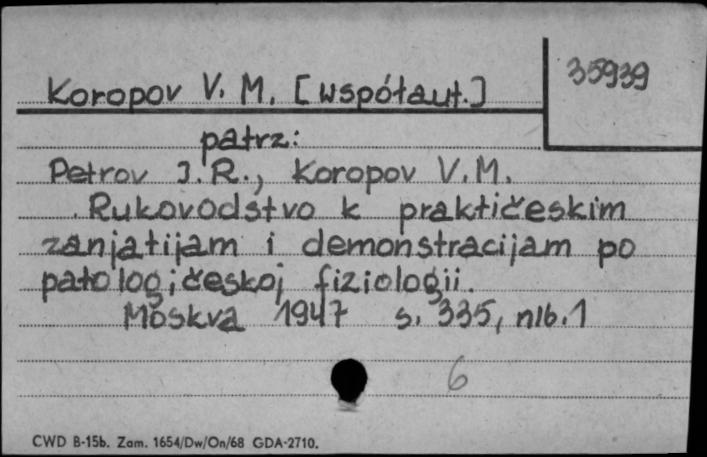 35939
Koropov V. M. [współaut.]
patrz:
Petrov J. R., Koropov V. M.
Rukovodstvo k praktičeskim
zanjatijam i demonstracijam po
patologičeskoj fiziologii.
Moskva 1947 s. 335, nlb. 1
6
CWD B-15b. Zam. 1654/Dw/On/68 GDA-2710.